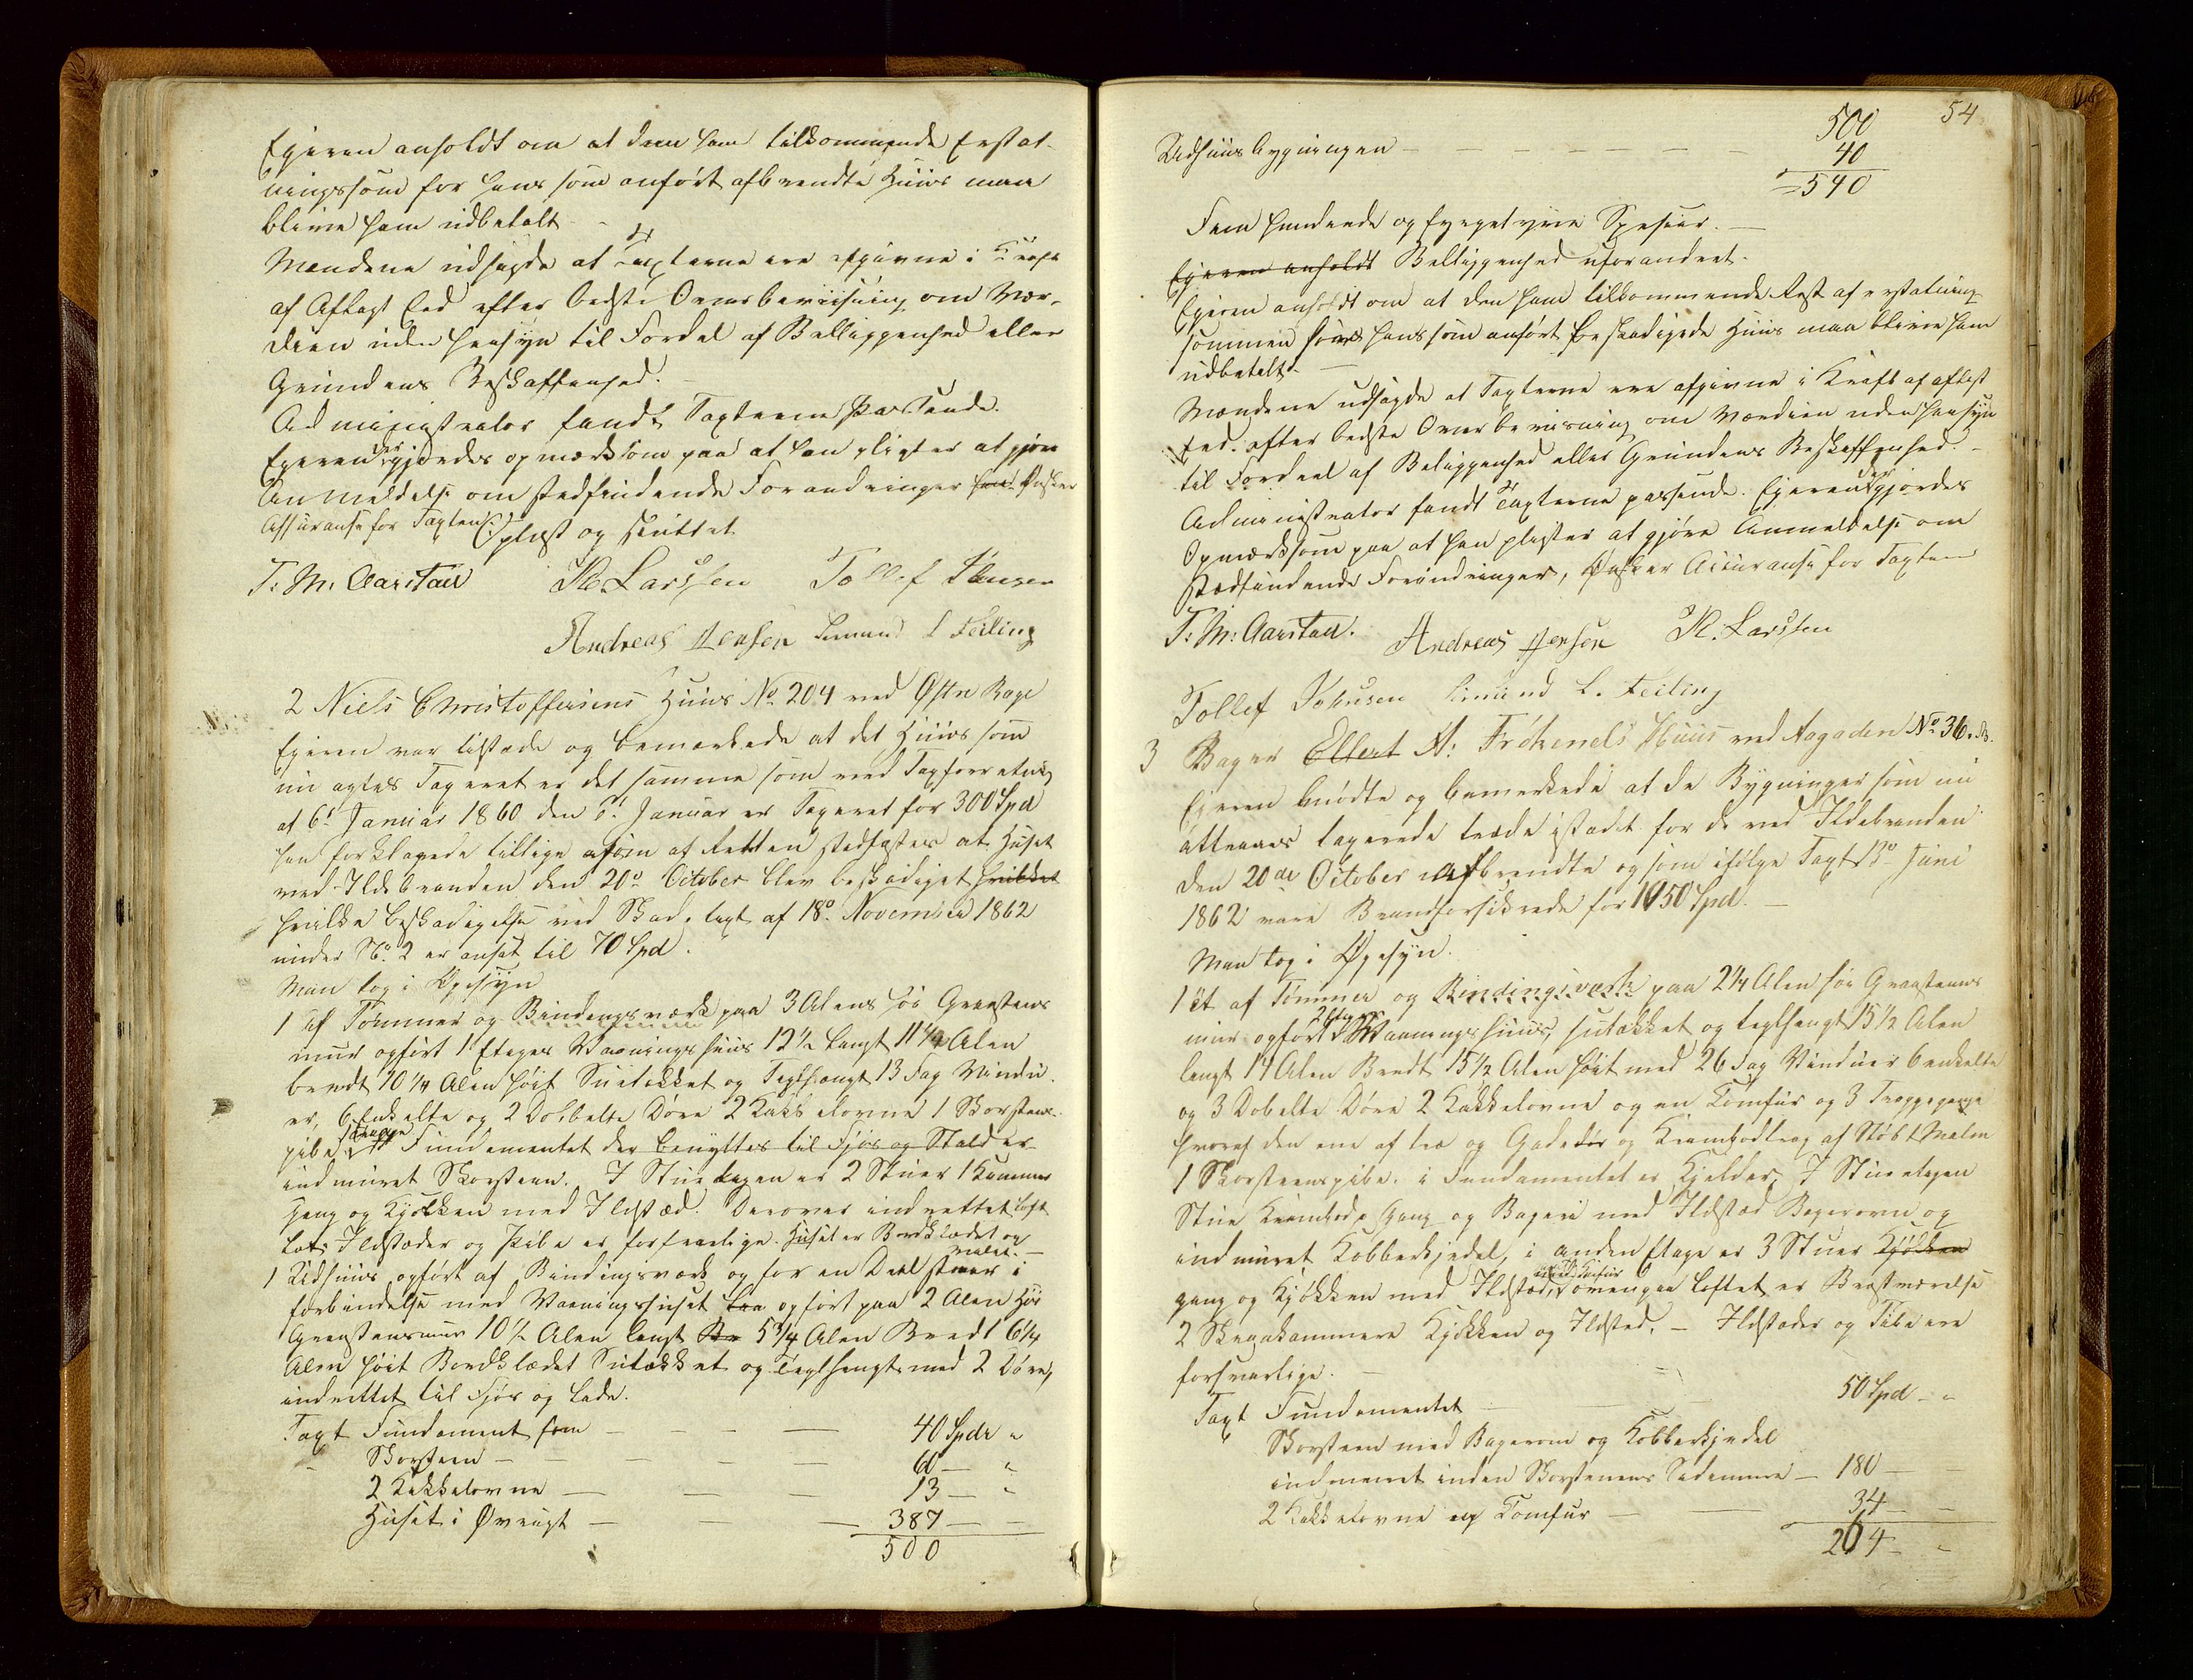 Ejeren anholdt om at den ham tilkommende Erstat-
ningssom for hans som anført afbrendte Huus maa
blive ham udbetalt
Mændene udsagde at Taxterne ere afgivne i Kraft
af Aflagt Eed efter bedste Overbeviisning om Vær-
dien uden Hensyn til Fordel af Belliggenhed eller
Grundens Beskaffenhed.
Administrator fandt Taxterne passende.
Ejeren gjordes opmærksom paa at han pligter at gjøre
Anmeldelse om stedfindende Forandringer Ønsker
Assurance for Taxten
oplæst og sluttet
T. M. Aarstad R. Larssen Tollef Johnsen
Andreas Jensen Simund L Feiling
2 Niels Christoffersens Huus No 204 ved Østre Bage
Ejeren var tilstæde og bemærkede at det Huus som
nu agtes Taxeret er det samme som ved Taxforretning
af 6t Januar 1860 den 6t Januar er Taxeret for 300 Spd
han forklarede tillige af Retten stedfæstes at Huset
ved Ildebranden den 20de October blev beskadiget hvilket
hvilke beskadigelse ved Skadetaxt af 18de November 1862
under No 2 er ansat til 70 Spd.
Man tog i Øjesyn
1 af Tømmer og Bindingsværk paa 3 Alens høi Graasteens
muur opført 1 Etages Vaaningshuus 12½ langt 11¼ Alen
bredt 10¼ Alen høit Sutækket og Teglhængt 13 Fag Vindu-
er, 6 Enkelte og 2 Dobbelte Døre 2 Kakelovne 1 Skorsteens
pibe 1 Trappe Fundamentet der benyttes til Fjøs og Stald er
indmuret Skorsteen. I Stueetagen er 2 Stuer 1 Kammer
Gang og Kjøkken med Ildsted. Derover indrettet Loft
Ildsteder og Pibe er forsvarlige. Huset er Bordklædet og
malet.
1 Udhuus opført af Bindingsværk og for en Deel staaer i
forbindelse med Vaaningshuset opført paa 2 Alen høi
Graasteensmuur 10½ Alen langt 5¾ Alen Bredt 6¼
Alen høit Bordklædet Sutækket og Teglhængt med 2 Døre,
indrettet til Fjøs og Lade.
Taxt Fundament 40 Spdr "
Skorsteen 60 "
2 Kakkelovne 13 "
Huset i Øvrigt 387
500
54
500
Udhuusbygningen 40
540
Fem hundrede og fyrgetyve Spesier.
Ejeren anholdt Belliggenhed uforandret.
Ejeren anholdt om at den ham tilkommende Rest af erstatning
sommen for hans som anført beskadigede Huus maa blive ham
udbetalt.
Mændene udsagde at Taxterne ere afgivne i Kraft af aflagt
Eed. efter bedste Overbevisning om Værdien uden Hensyn
til Fordeel af Beliggenhed eller Grundens Beskaffenhed.
Administrator fandt Taxterne passende. Ejeren gjordes
Opmærksom paa at han pligter at gjøre Anmeldelse om
stedfindende Forandringer, Ønsker Assurance for Taxten
T. M. Aarstad. Andreas Jensen R. Larssen
Tollef Johnsen Simund L. Feiling
3 Bager Ellert A: Frøkenels Huus ved Aagaden No 36. B.
Ejeren mødte og bemerkede at de Bygninger som nu
attraaes taxerede træde istedet for de ved Ildebranden
den 20de October afbrendte og som ifølge Taxt Juni
1862 vare Brandforsikrede for 1050 Spd.
Man tog i Øjesyn.
1 et af Tømmer og Bindingsværk paa 2¼ Alen høi Graasteens
muur opført 2 Etages Vaaningshuus, sutækket og teglhængt 15½ Alen
langt 14 Alen Bredt 15½ Alen høit med 26 Fag Vinduer 6 enkelte
og 3 Dobelte Døre 2 Kakkelovne og en Komfur og 3 Trappegange
hvoraf den ene af træ og Gadedør og Krambodtrap af Støbt Malm
1 Skorsteenspibe. i Fundamentet er Kjelder, I Stueetagen
Stue Krambod, Gang og Bageri med Ildsted Bagerovn og
indmuret Kobberkjedel, i anden Etage er 3 Stuer Kjøkken
gang og Kjøkken med Ildsted, ovenpaa Loftet er Bræstværelse
2 Kammere Kjøkken og Ildsted. – Ildsteder og Pibe ere
forsvarlige.
Taxt Fundamentet 50 Spd "
Skorsteen med Bagerovn og Kobberkjedel
indmuret inden Skorstenens Sidemure 180
2 Kakkelovne og Komfur 34
264